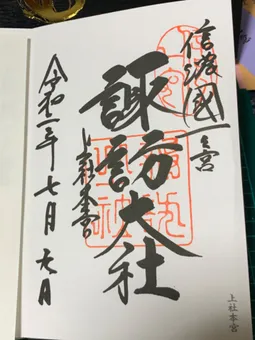 信濃國一之宮
諏訪大社
上社本宮
令和 年七月 日
上社本宮